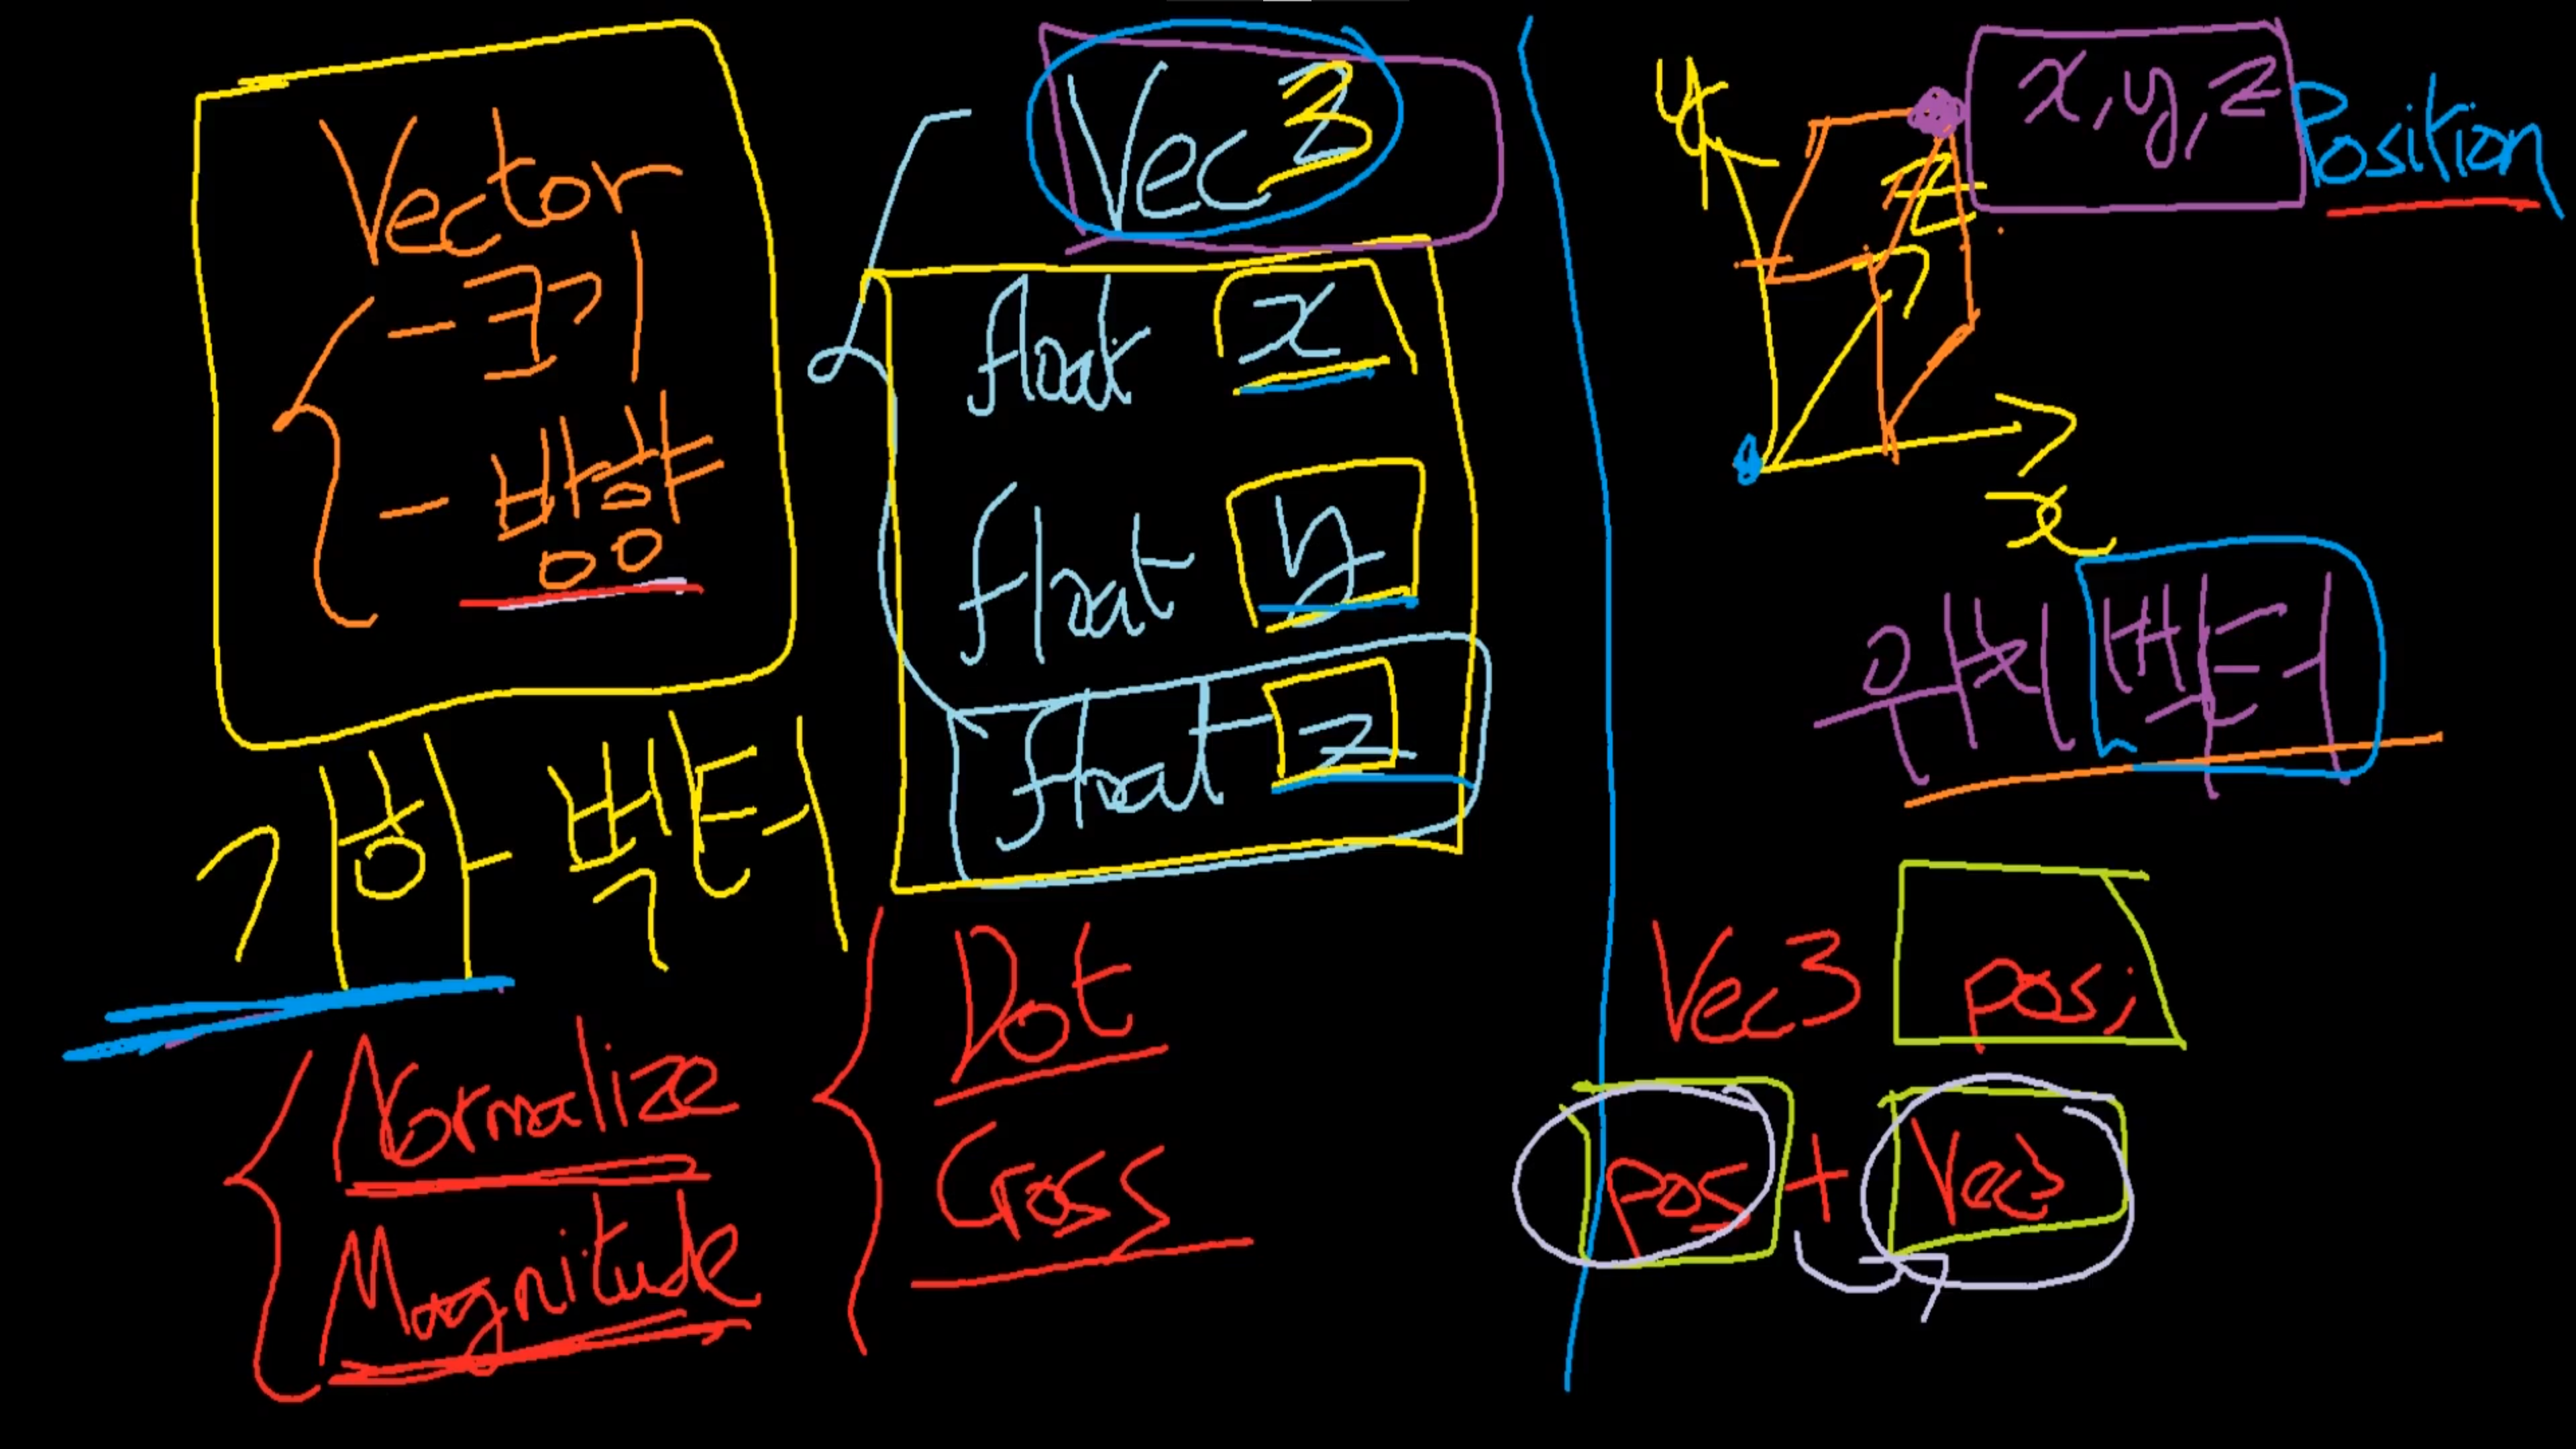 Vector
- 크기
- 방향
기하 벡터
Normalize
Magnitude
Vec3
float x
float y
float z
Dot
Cross
y
z
x
x, y, z
Position
위치 벡터
Vec3 pos;
pos + Vec3